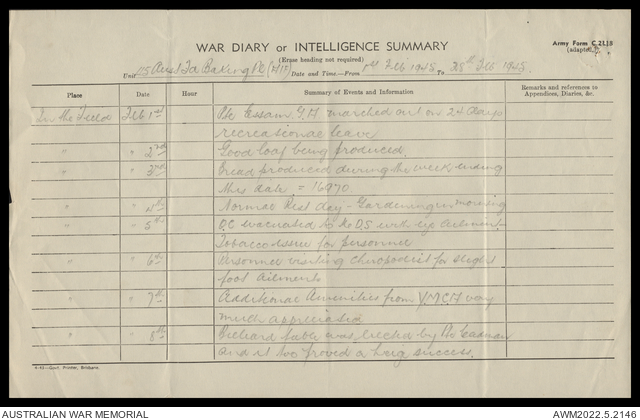 WAR DIARY or INTELLIGENCE SUMMARY
Army Form C.2118
(adapted.)
(Erase heading not required)
Unit 115 Aust Fd Baking Pl (AIF) Date and Time.—From 1st Feb 1945 To 28th Feb 1945.
Place Date Hour Summary of Events and Information Remarks and references to Appendices, Diaries, &c.
In the Field Feb 1st Pte Essam G.H marched out on 24 days
recreational leave
" " 2nd Good loaf being produced
" " 3rd Bread produced during the week ending
this date = 16970.
" " 4th Normal Rest day - Gardening in morning
" " 5th O.C evacuated to MDS with eye ailment-
Tobacco Issue for personnel
" " 6th Personnel visiting Chiropodist for slight
foot ailments
" " 7th Additional Amenities from Y.M.C.A very
much appreciated
" " 8th table was erected by Pte
and it too proved a huge success.
4-43—Govt. Printer, Brisbane.
AUSTRALIAN WAR MEMORIAL
AWM2022.5.2146